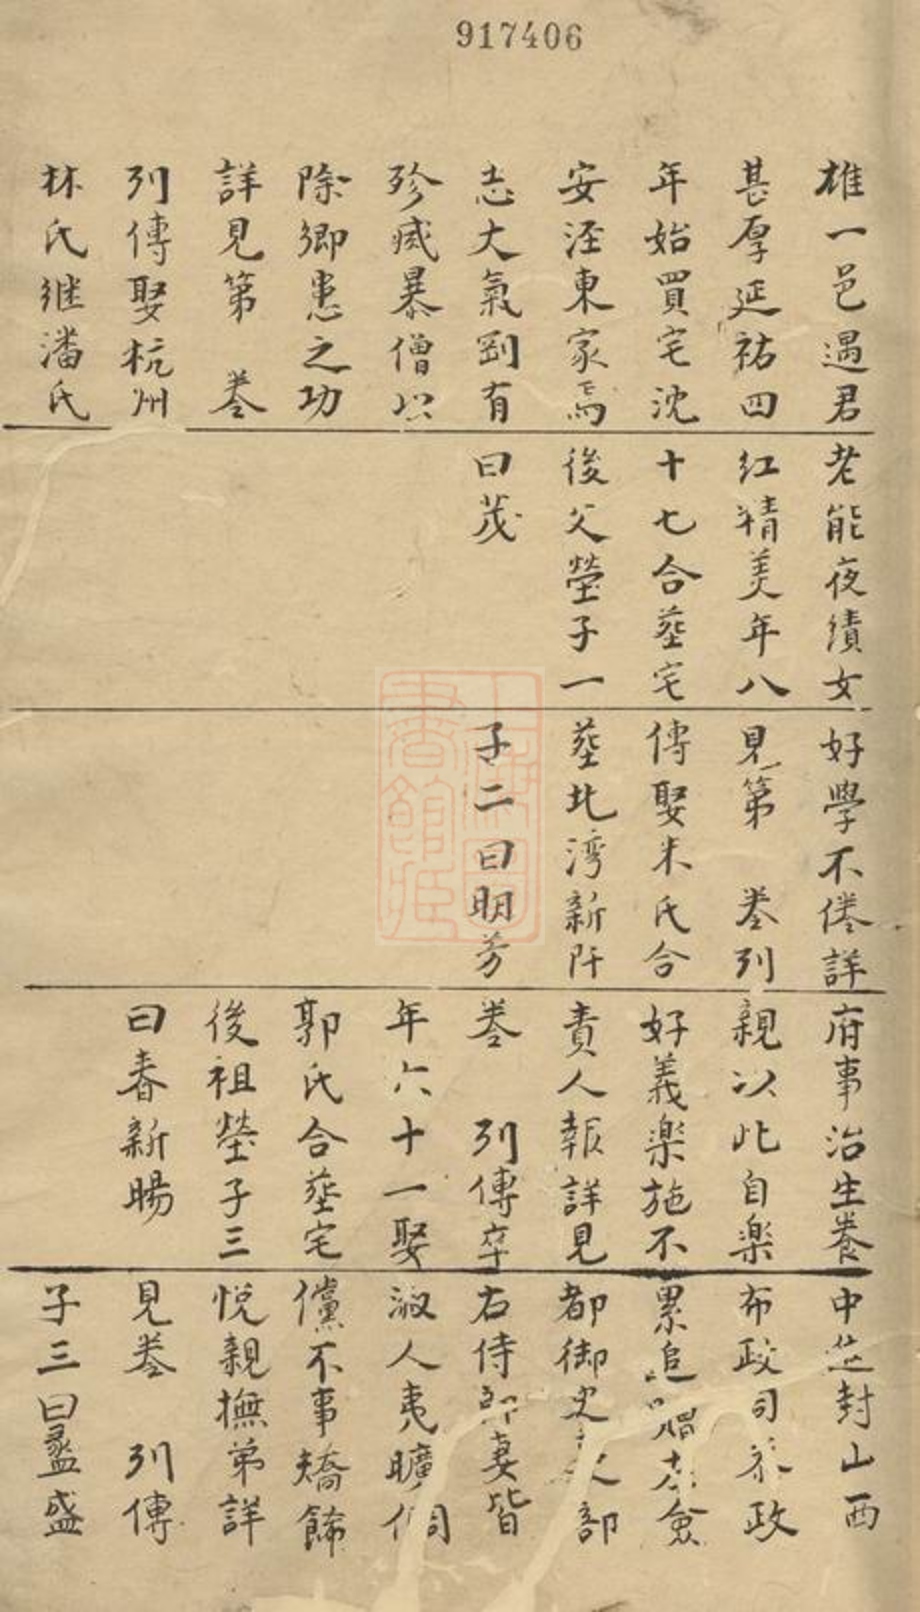 917406
雄一邑遇君
甚厚延祐四
年始買宅沈
安溼東家焉
志大氣剛有
殄瘱暴僧以
除鄉患之功
詳見第 卷
列傳娶杭州
林氏継潘氏
老能夜績女
紅精美年八
十七合葬宅
後父塋子一
曰茂
好學不倦詳
見第 卷列
傳娶朱氏合
葬北湾新阡
子二曰明芳
府事治生養
親以此自楽
好義楽施不
責人報詳見
卷 列傳卒
年六十一娶
郭氏合葬宅
後祖塋子三
曰春新暘
中生封山西
布政司參政
累追贈右僉
都御史部
右侍郎妻皆
淑人夷曠倜
儻不事矯餙
悅親撫弟詳
見卷 列傳
子三曰盝盛
上海圖書館藏